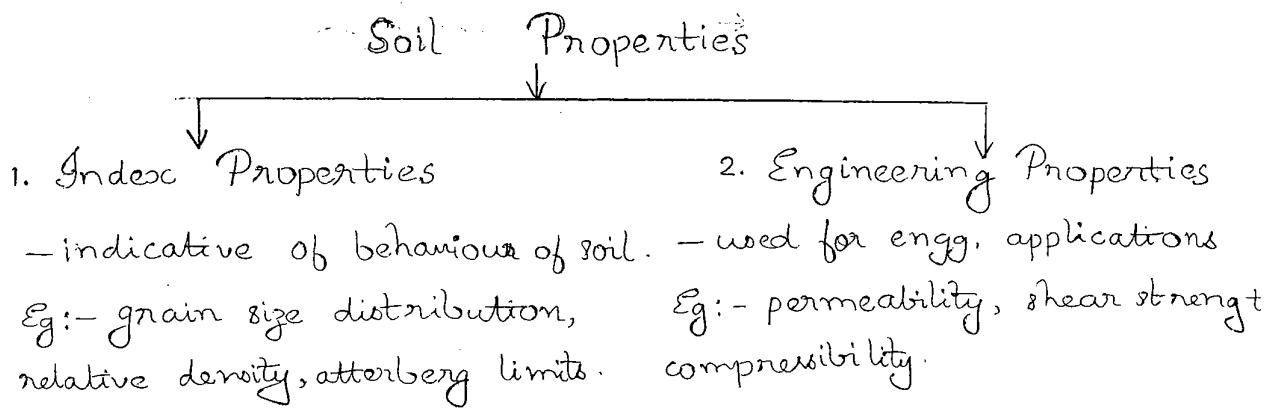 Soil Properties
1. Index Properties
– indicative of behaviour of soil.
Eg:– grain size distribution,
relative density, atterberg limits.
2. Engineering Properties
– used for engg. applications
Eg:– permeability, shear strengt
compressibility.